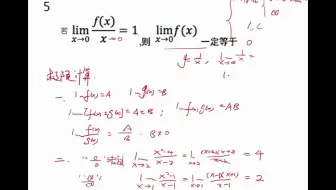 5
若 lim x→0 f(x)/x = 1 ,则 lim x→0 f(x) 一定等于 0
x→0
∞
1, C
0
y = 1/x , lim x→∞ 1/x
极限计算
一. l-f(x)=A l-g(x)=B
l-[f(x)+g(x)]=A±B ; l-f(x)g(x)=AB
l- f(x)/g(x) = A/B . B≠0
二. "0/0" lim x→2 x²-4/x-2 = lim x→2 (x+2)(x-2)/x-2 = 4
l- x→1 x²-1/x-1 = lim x→1 (x-1)(x+1)/x-1 = 2